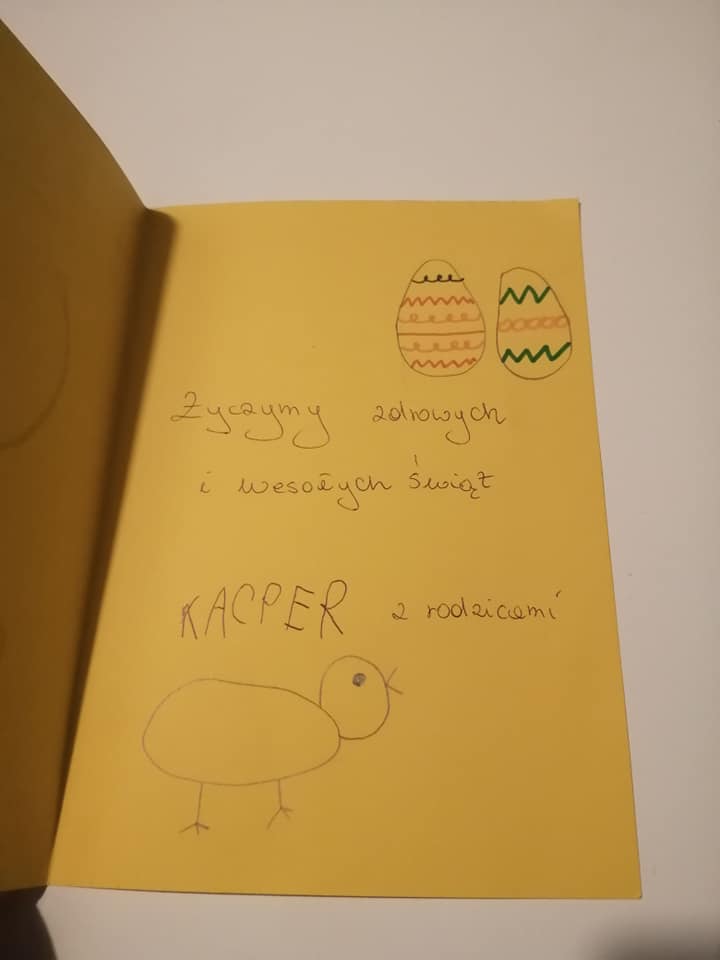 Życzymy zdrowych
i wesołych świąt
KACPER z rodzicami